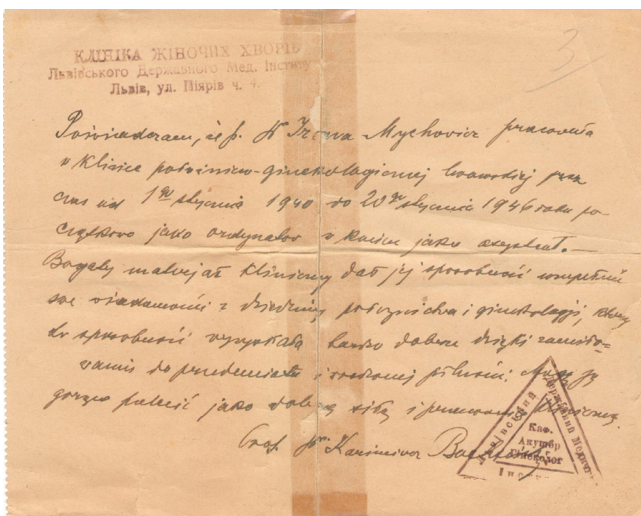 3
КЛІНІКА ЖІНОЧИХ ХВОРІБ
Львівського Державного Мед. Інститу
Львів, ул. Піярів ч. 4.
Poświadczam, że p. Dr Irena Mychowicz pracowała
w Klinice położniczo-ginekologicznej lwowskiej przez
czas od 1go stycznia 1940 do 20go stycznia 1946 roku po
czątkowo jako ordynator w końcu jako asystent.-
Bogaty materjał kliniczny dał jej sposobność uzupełnić
swe wiadomości z dziedziny położnictwa i ginekologji, którą
to sposobność wyzyskała bardzo dobrze dzięki zamiło-
waniu do przedmiotu i wrodzonej pilności; Mogę ją
gorąco polecić jako dobrą siłę i kliniczną.
Prof. Dr Kazimierz
Львівський
Державний Медичн
Інст
Каф.
Акушер
Гінеколог